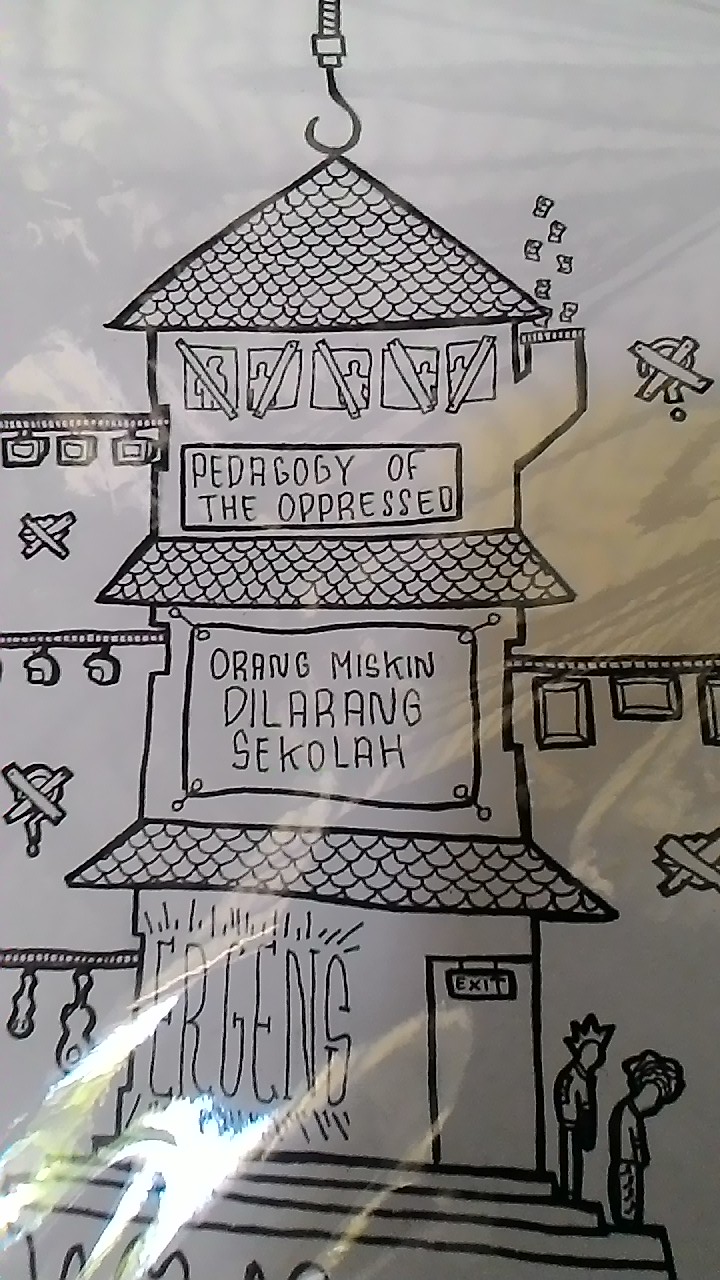 PEDAGOGY OF
THE OPPRESSED
ORANG MISKIN
DILARANG
SEKOLAH
ERGENS
EXIT